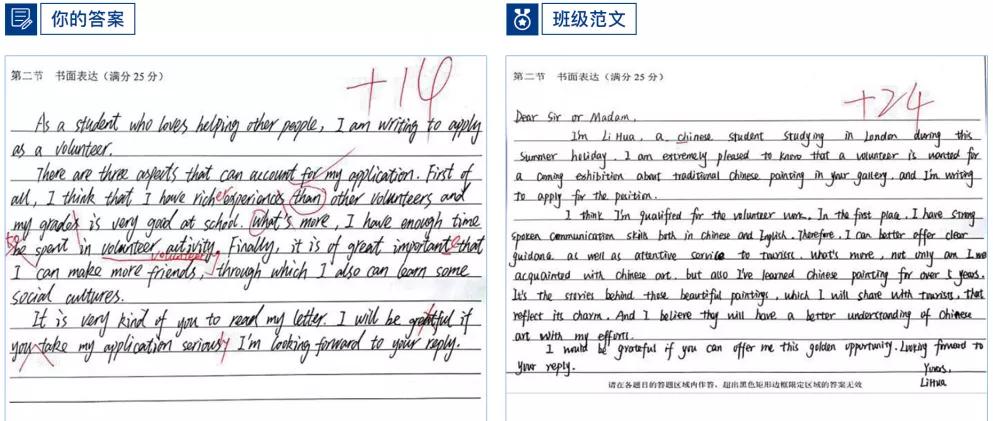 你的答案
第二节 书面表达（满分25分）
+14
As a student who loves helping other people, I am writing to apply
as a volunteer.
There are three aspects that can account for my application. First of
all, I think that I have richer experiences than other volunteers and
my grades is very good at school. What's more, I have enough time
to be spent in volunteer activity. Finally, it is of great important that
volunteering
I can make more friends, through which I also can learn some
social cultures.
It is very kind of you to read my letter. I will be grateful if
you take my application seriously I'm looking forward to your reply.
班级范文
第二节 书面表达（满分25分）
+24
Dear Sir or Madam,
I'm Li Hua, a chinese student studying in London during this
summer holiday. I am extremely pleased to know that a volunteer is wanted for
a coming exhibition about traditional Chinese painting in your gallery, and I'm writing
to apply for the position.
I think I'm qualified for the volunteer work. In the first place, I have strong
spoken communication skills both in Chinese and English. Therefore, I can better offer clear
guidance as well as attentive service to tourists. What's more, not only am I
acquainted with chinese art, but also I've learned Chinese painting for over 5 years.
It's the stories behind those beautiful paintings, which I will share with tourists, that
reflect its charm. And I believe they will have a better understanding of Chinese
art with my efforts.
I would be grateful if you can offer me this golden opportunity. Looking forward to
your reply.
Yours,
Li Hua
请在各题目的答题区域内作答，超出黑色矩形边框限定区域的答案无效